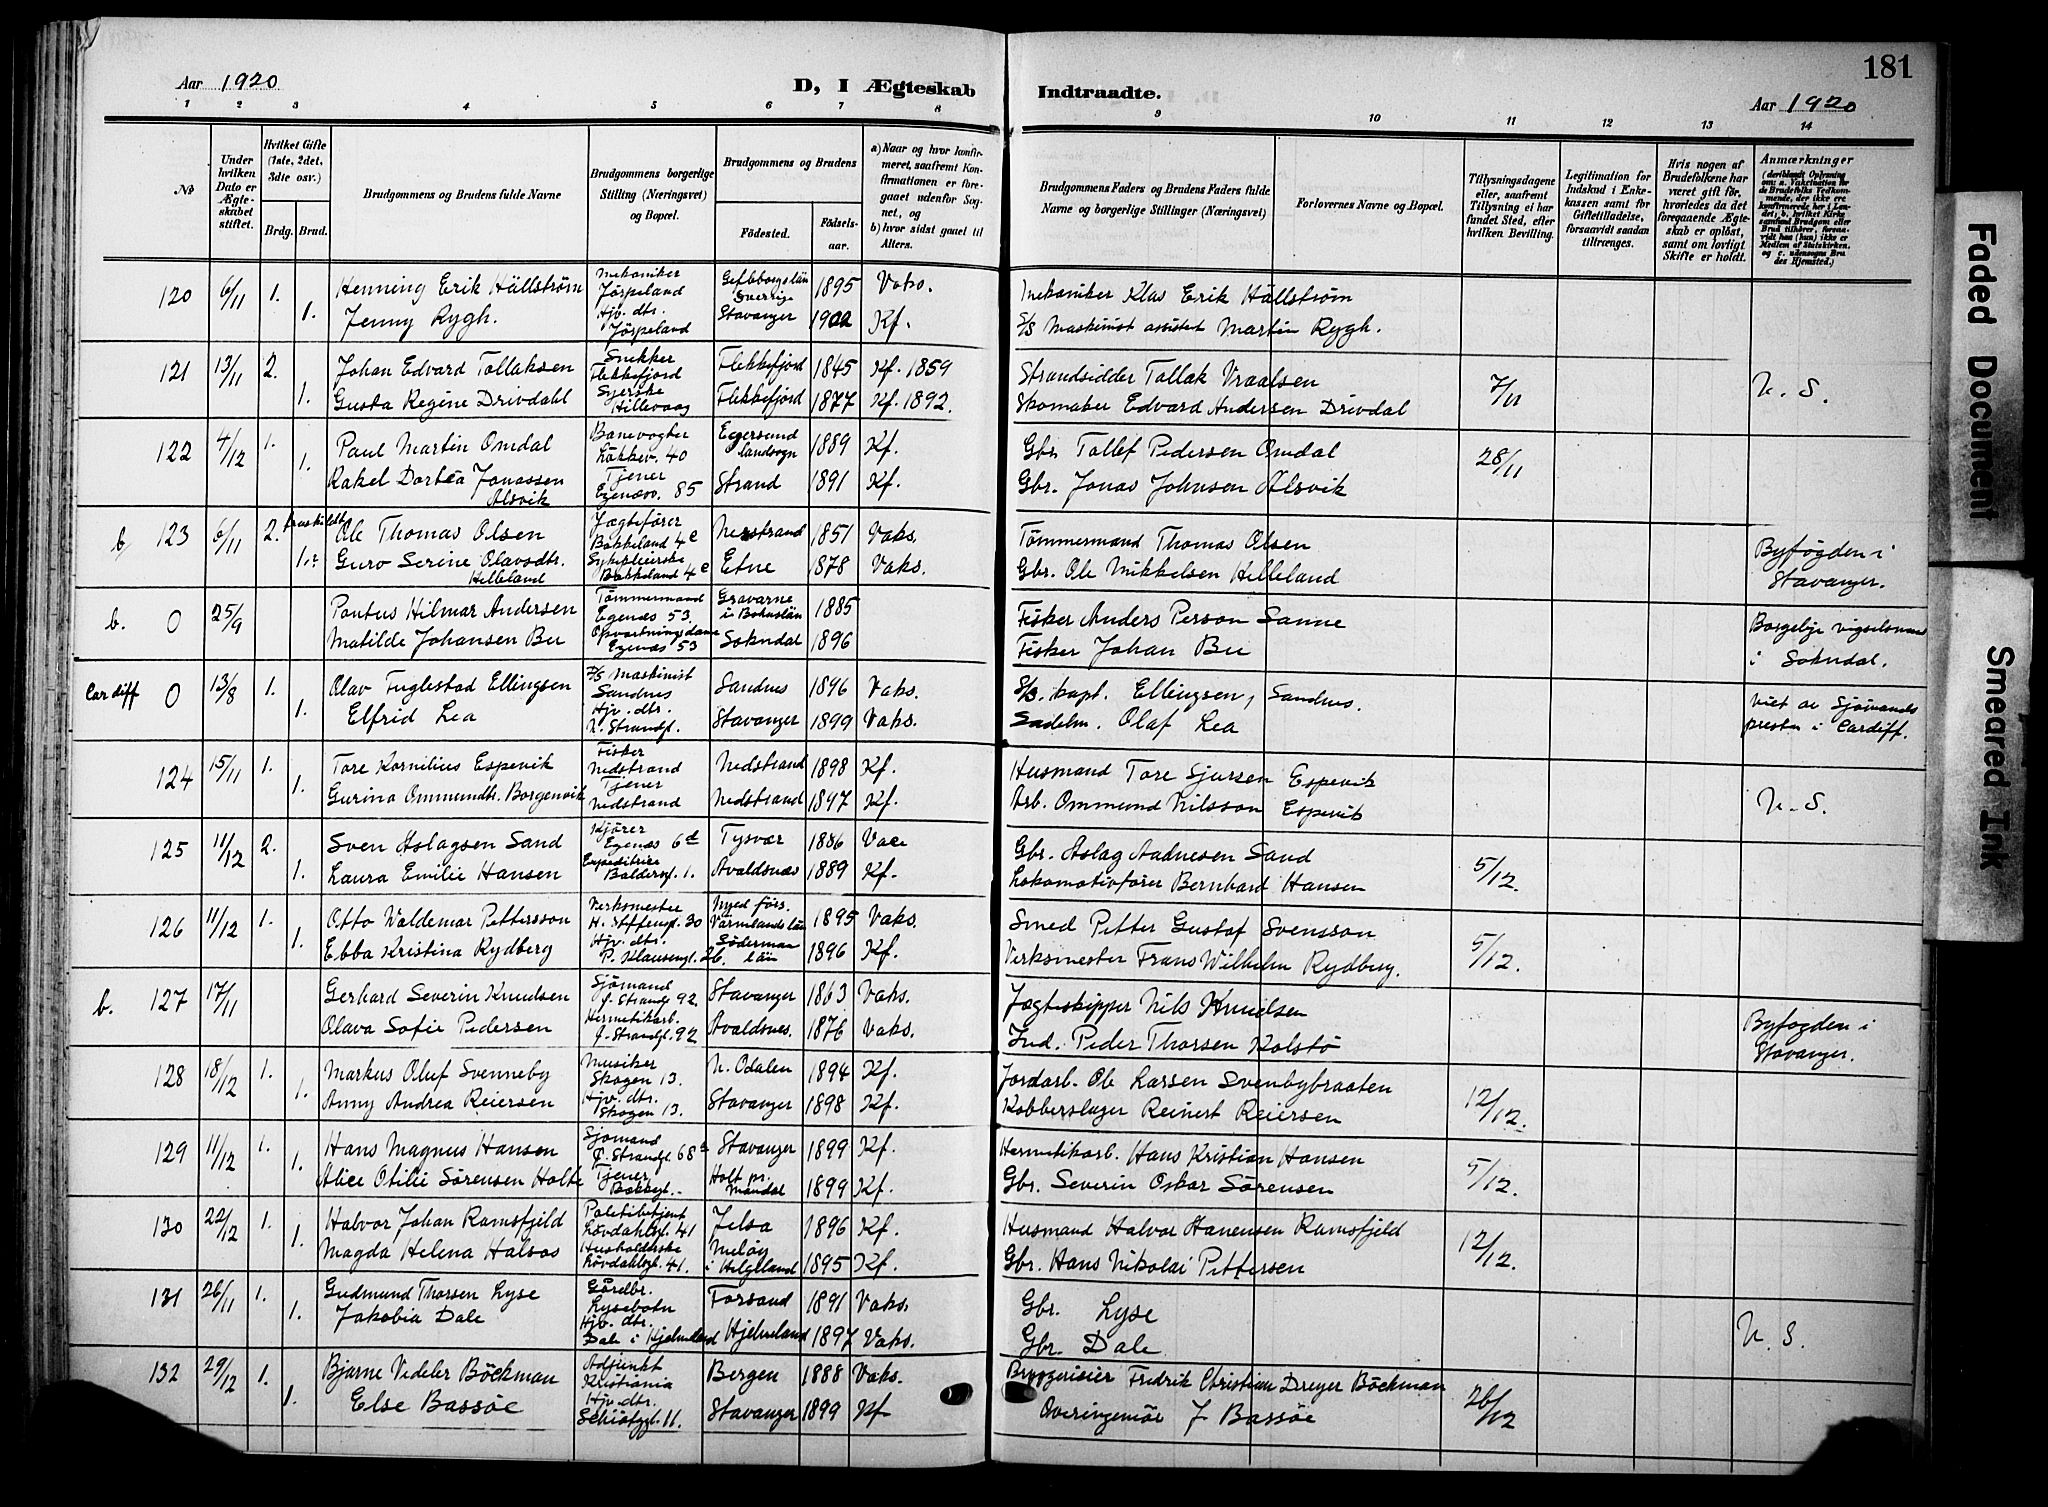 181
Aar 1920
D, I Ægteskab Indtraadte.
Aar 1920
1 2 3 4 5 6 7 8 9 10 11 12 13 14
No
Under hvilken Dato er Ægteskabet stiftet.
Hvilket Gifte (1ste, 2det, 3dte osv.)
Brdg. Brud.
Brudgommens og Brudens fulde Navne
Brudgommens og Brudens borgerlige Stilling (Næringsvei) og Bopæl.
Brudgommens og Brudens
Fødested. Fødselsaar.
a) Naar og hvor konfirmeret, saafremt Konfirmationen er foregaaet udenfor Sognet, og
b) hvor sidst gaaet til Alters.
Brudgommens Faders og Brudens Faders fulde Navne og borgerlige Stillinger (Næringsvei)
Forlovernes Navne og Bopæl.
Tillysningsdagene eller, saafremt Tillysning ei har fundet Sted, efter hvilken Bevilling.
Legitimation for Indskud i Enkekassen samt for Giftetilladelse, forsaavidt saadan tiltrænges.
Hvis nogen af Brudefolkene har været gift før, hvorledes da det foregaaende Ægteskab er opløst, samt om lovligt Skifte er holdt.
Anmærkninger
120 6/11 1. Henning Erik Hällström Mekaniker Jörpeland Gefleborgslän Sverrige 1895 Vaks. Mekaniker Klas Erik Hällström
1. Jenny Rygh. Hjv. dtr. Jörpeland Stavanger 1902 Kf. S/S Maskinist assistent Martin Rygh.
121 13/11 2. Johan Edvard Tollaksen Snekker Flekkefjord Flekkefjord 1845 Kf. 1859 Strandsidder Tollak Vraalsen 7/11 U. S.
1. Gusta Regine Drivdahl Syerske Hillevaag Flekkefjord 1877 Kf. 1892. Skomaker Edvard Andersen Drivdal
122 4/12 1. Paul Martin Omdal Banevogter Løkkev. 40 Egersund landsogn 1889 Kf. Gbr. Tollef Pedersen Omdal 28/11
1. Rakel Dortea Jonassen Alsvik Tjener Egenesv. 85 Strand 1891 Kf. Gbr. Jonas Johnsen Alsvik
b 123 6/11 2. fraskildt Ole Thomas Olsen Jagtefører Bakkeland 4c Nerstrand 1851 Vaks. Tömmermand Thomas Olsen Byfogden i Stavanger.
1. Guro Serine Olavsdtr. Helleland Sykepleierske Bakkeland 4c Etne 1878 Vaks. Gbr. Ole Mikkelsen Helleland
b. 0 25/9 Pontus Hilmar Andersen Tömmermand Egenes 53. Gravarne i Bohuslän 1885 Fisker Anders Person Sanne Borgelige vigselsmand i Sokndal.
Matilde Johansen Bu Opvartningsdame Egenes 53 Sokndal 1896 Fisker Johan Bu
Cardiff 0 13/8 1. Olav Fuglestad Ellingsen Maskinist Sandnes Sandnes 1896 Vaks. S/S. kapt. Ellingsen, Sandnes. Viet av Sjömandspresten i Cardiff.
1. Elfrid Lea Hjv. dtr. N. Strandg. Stavanger 1899 Vaks. Sadelm. Olaf Lea
124 15/11 1. Tore Kornilius Espevik Fisker Nedstrand Nedstrand 1898 Kf. Husmand Tore Sjursen Espevik
1. Gurina Ommundtr. Borgenvik Tjener Nedstrand Nedstrand 1897 Kf. Arb. Ommund Nilsson Espevik U. S.
125 11/12 2. Sven Aslagsen Sand Kjører Egenes 6d Tysvær 1886 Vac Gbr. Aslag Aadnesen Sand 5/12.
1. Laura Emilie Hansen Expeditrice Baldersg. 1. Avaldsnes 1889 Kf. Lokomotivfører Bernhard Hansen
126 11/12 1. Otto Valdemar Pettersson Verksmester H. Steffensg. 30 Nyed förs. Värmlands län 1895 Vaks. Smed Petter Gustaf Svensson 5/12.
1. Ebba Kristina Rydberg Hjv. dtr. P. Klausensgt. 26. Söderman län 1896 Kf. Verksmester Frans Wilhelm Rydberg.
b. 127 17/11 Gerhard Severin Knudsen Sjømand J. Strandg 92 Stavanger 1863 Vaks. Jagteskipper Nils Knudsen Byfogden i Stavanger.
Olava Sofie Pedersen Hermetikarb. J. Strandgt. 92 Avaldsnes. 1876 Vaks. Ind. Peder Thorsen Kolstö
128 18/12 1. Markus Oluf Svenneby Musiker Skogen 13. N. Odalen 1894 Kf. Jordarb. Ole Larsen Svenbybraaten 12/12.
1. Anny Andrea Reiersen Hjv. dtr. Skogen 13. Stavanger 1898 Kf. Kobberslager Reinert Reiersen
129 11/12 1. Hans Magnus Hansen Sjømand Strandgt. 68a Stavanger 1899 Kf. Hermetikarb. Hans Kristian Hansen 5/12.
1. Alice Otilie Sörensen Holte Tjener Bakkegt. Holt pr. Mandal 1899 Kf. Gbr. Severin Oskar Sörensen
130 22/12 1. Halvor Johan Ramsfjeld Politibetjent Lövdahlsgt. 41 Jelsa 1896 Kf. Husmand Halvor Hanensen Ramsfjeld 12/12.
1. Magda Helena Halsos Husholderske Lövdahlsgt. 41. Meløy i Helgeland 1895 Kf. Gbr. Hans Nikolai Pettersen
131 26/11 1. Gudmund Thorsen Lyse Gårdbr. Lysebotn Forsand 1891 Vaks. Gbr. Lyse U. S.
1. Jakobia Dale Hjv. dtr. Dale i Hjelmeland Hjelmeland 1897 Vaks. Gbr. Dale
132 29/12 1. Bjarne Vedeler Böckman Adjunkt Kristiania Bergen 1888 Vaks. Byggerieier Fredrik Christian Dreyer Böckman 26/12
1. Else Bassöe Hjv. dtr. Schiötzgt. 11. Stavanger 1899 Kf Overingeniör J Bassöe
Faded Document
Smeared Ink